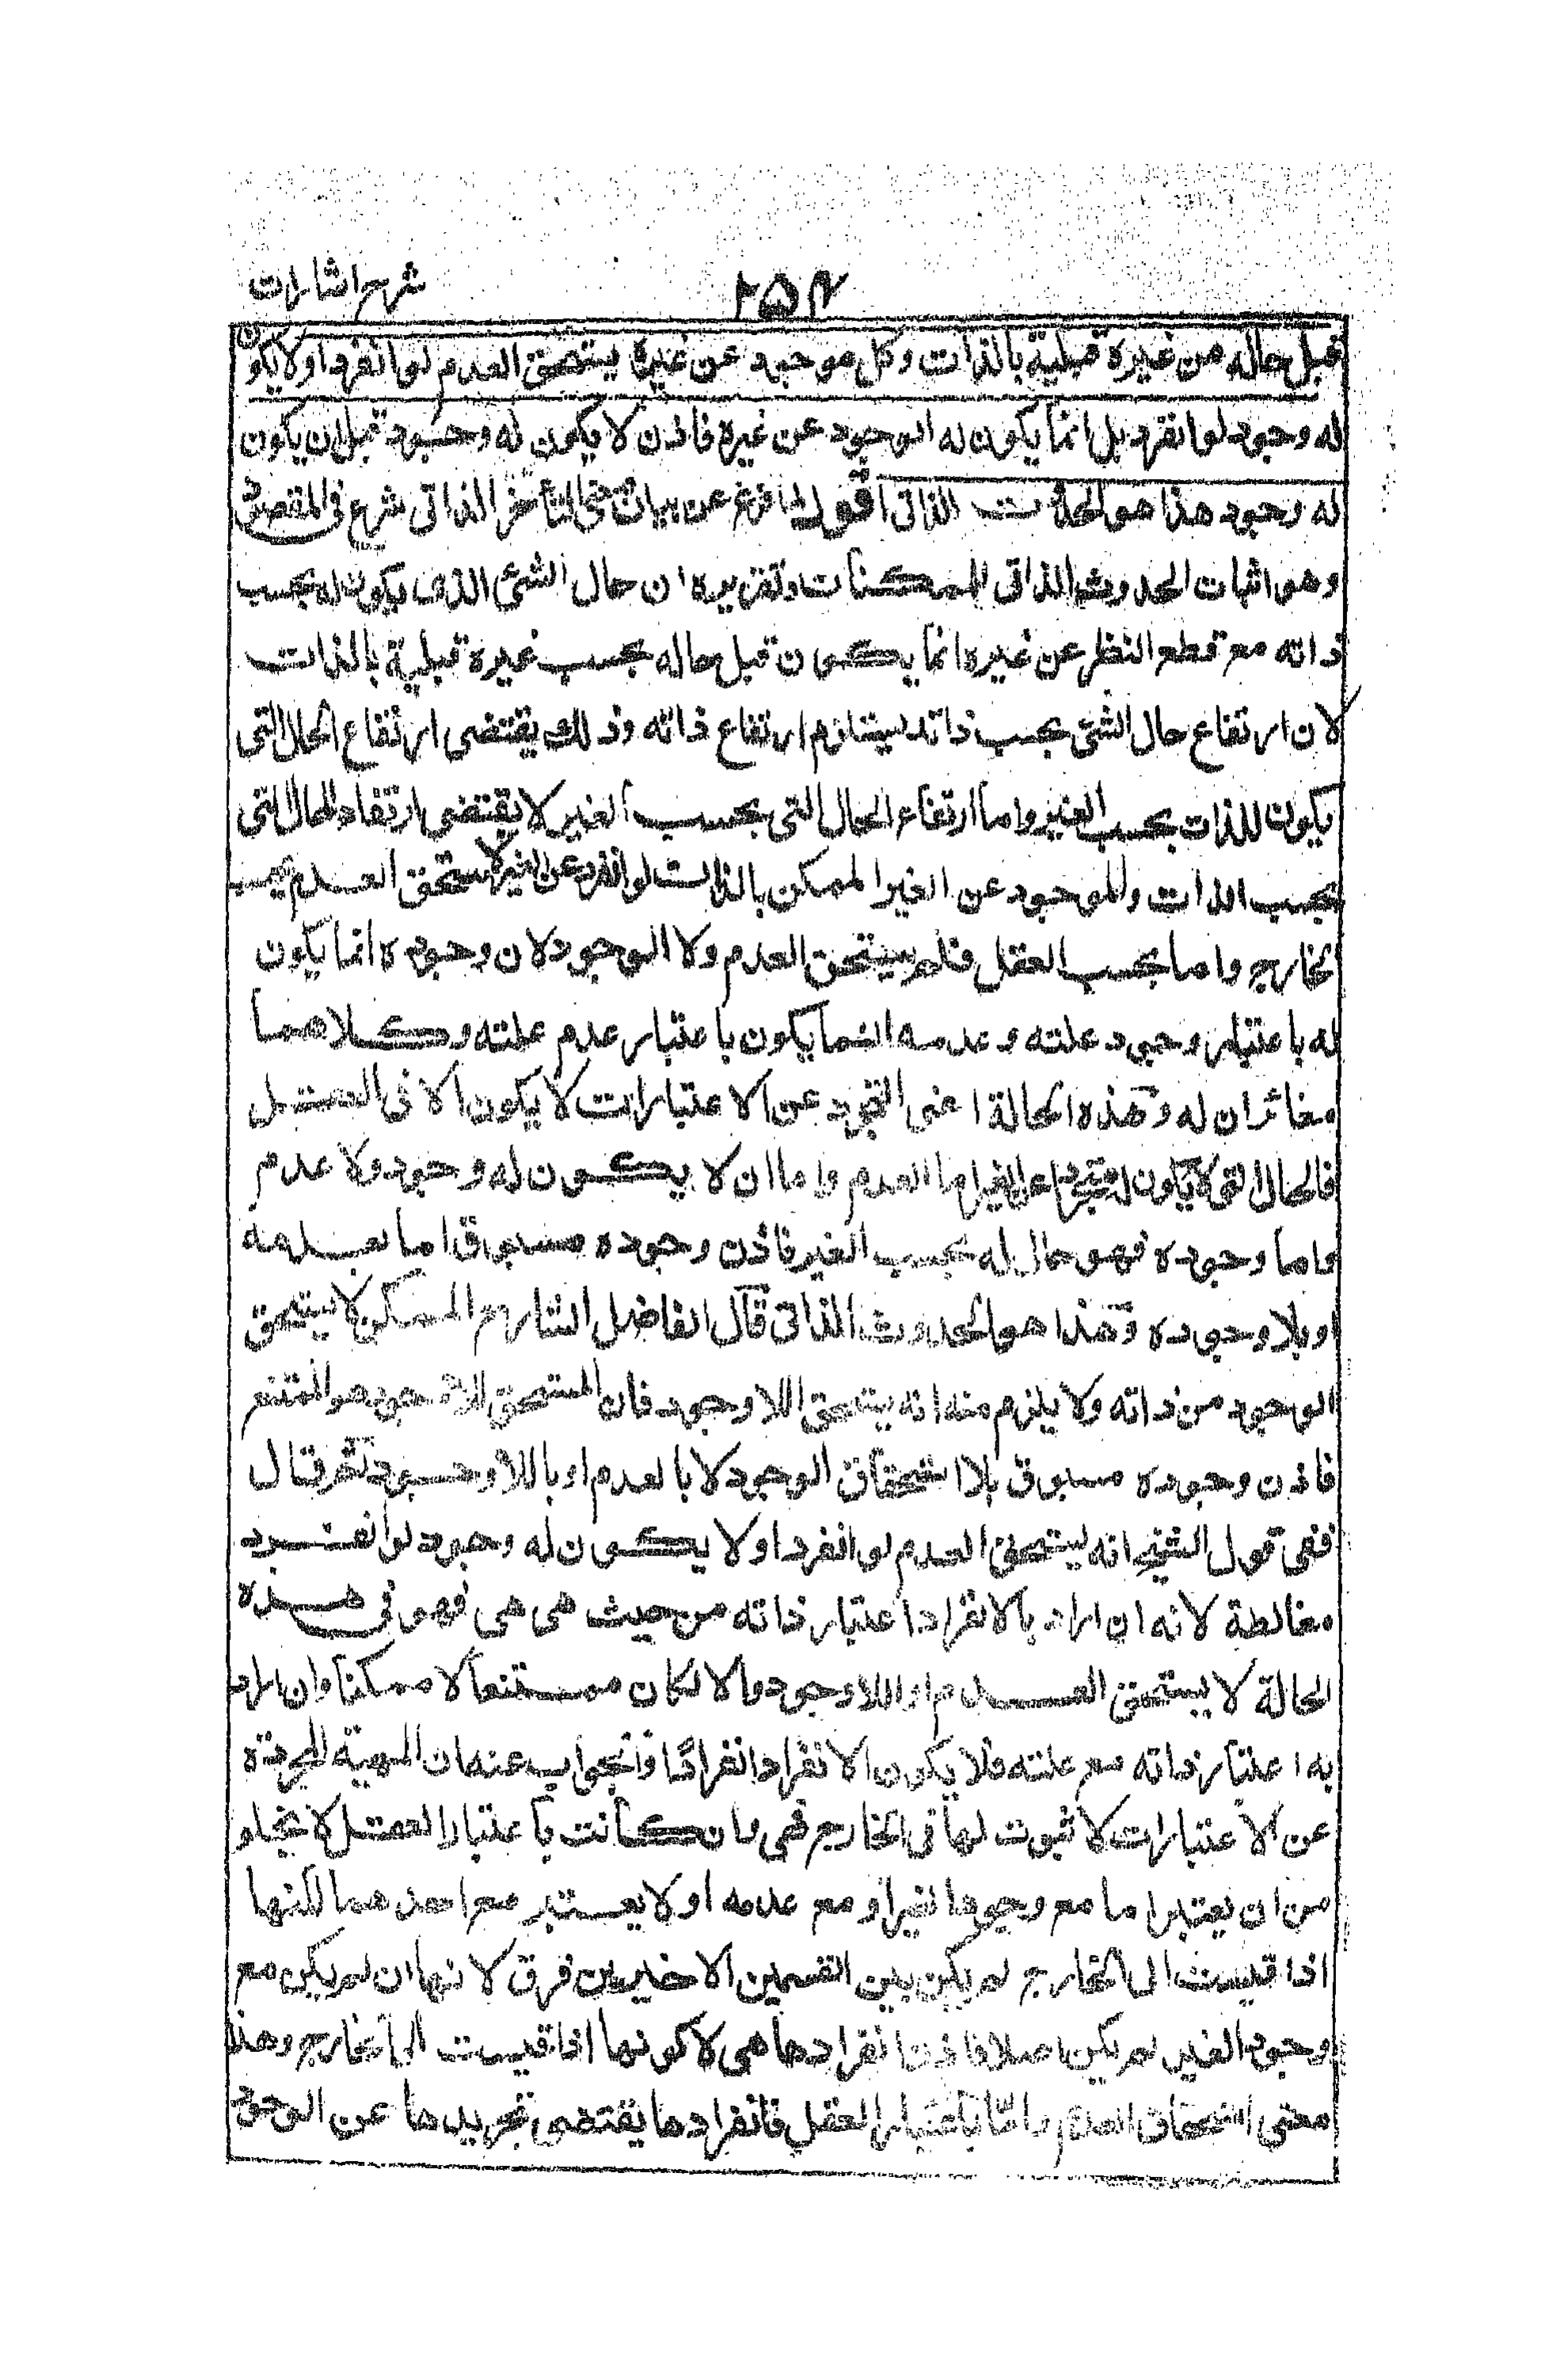 شرح اشارات
۲۵۴
قبل حاله من غيره قبلية بالذات وكل موجود عن غيره يستحق العدم لو انفرد او لا يكون
له وجود لو انفرد بل انما يكون له الوجود عن غيره فاذن لا يكون له وجود قبل ان يكون
له وجود هذا هو الحدوث الذاتى اقول لما فرغ عن بيان معنى التأخر الذاتى شرع فى المقصود
وهو اثبات الحدوث الذاتى للممكنات وتقريره ان حال الشئ الذى يكون له بحسب
ذاته مع قطع النظر عن غيره انما يكون قبل حاله بحسب غيره قبلية بالذات
لان ارتفاع حال الشئ بحسب ذاته يستلزم ارتفاع ذاته وذلك يقتضى ارتفاع الحال التى
يكون للذات بحسب الغير واما ارتفاع الحال التى بحسب الغير لا يقتضى ارتفاع الحال التى
بحسب الذات والموجود عن الغير الممكن بالذات لو انفرد عن الغير لاستحق العدم بحسب
الخارج واما بحسب العقل فلم يستحق العدم ولا الوجود لان وجوده انما يكون
له باعتبار وجود علته وعدمه انما يكون باعتبار عدم علته وكلاهما
مغائران له وهذه الحالة اعنى التجرد عن الاعتبارات لا يكون الا فى العقل
فالحال التى لا يكون له متجردا عن الغير اما العدم واما ان لا يكون له وجود ولا عدم
واما وجوده فهو حال له بحسب الغير فاذن وجوده مسبوق اما بعدمه
او بلا وجوده وهذا هو الحدوث الذاتى قال الفاضل الشارح الممكن لا يستحق
الوجود من ذاته ولا يلزم منه انه يستحق اللا وجود فان المستحق اللاوجود هو الممتنع
فاذن وجوده مسبوق بلا استحقاق الوجود لا بالعدم او باللاوجود ثم قال
ففى قول الشيخ انه يستحق العدم لو انفرد او لا يكون له وجود لو انفرد
مغالطة لانه ان اراد بالانفراد اعتبار ذاته من حيث هى هى فهو فى هذه
الحالة لا يستحق العدم او اللاوجود والا لكان ممتنعا لا ممكنا وان اراد
به اعتبار ذاته مع علته فلا يكون الانفراد انفرادا والجواب عنه ان المهية المجردة
عن الاعتبارات لا ثبوت لها فى الخارج فهى وان كانت باعتبار العقل لا يخلو
من ان يعتبر اما مع وجود الغير او مع عدمه او لا يعتبر مع احدهما لكنها
اذا قيست الى الخارج لم يكن بين القسمين الاخيرين فرق لانها ان لم يكن مع
وجود الغير لم يكن اصلا فاذن انفرادها هى لا كونها اذا قيست الى الخارج وهذا
معنى استحقاق العدم واما باعتبار العقل فانفرادها يقتضى تجريدها عن الوجود